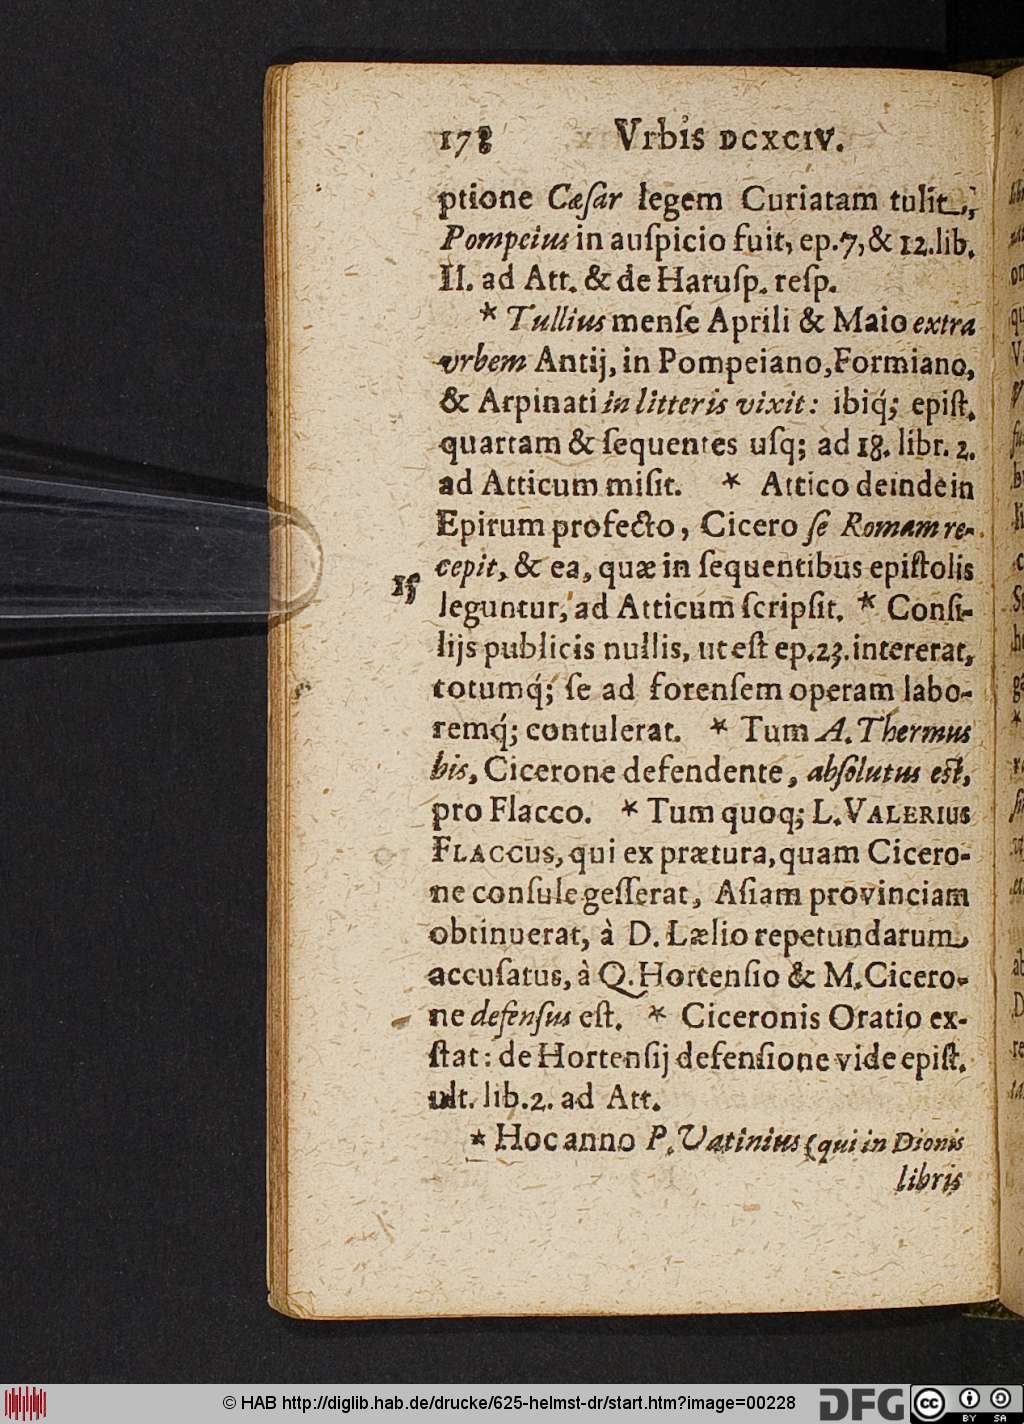 178 Vrbis DCXCIV.
ptione Cæſar legem Curiatam tulit,
Pompeius in auſpicio fuit, ep. 7, & 12. lib.
II. ad Att. & de Haruſp. reſp.
* Tullius menſe Aprili & Maio extra
vrbem Antij, in Pompeiano, Formiano,
& Arpinati in litteris vixit: ibiq́; epiſt.
quartam & ſequentes uſq; ad 18. libr. 2.
ad Atticum miſit. * Attico deinde in
Epirum profecto, Cicero ſe Romam re-
cepit, & ea, quæ in ſequentibus epiſtolis
15
leguntur, ad Atticum ſcripſit. * Conſi-
lijs publicis nullis, ut eſt ep. 23. intererat,
totumq́; ſe ad forenſem operam labo-
remq́; contulerat. * Tum A. Thermus
bis, Cicerone defendente, abſolutus eſt,
pro Flacco. * Tum quoq; L. VALERIUS
FLACCUS, qui ex prætura, quam Cicero-
ne conſule geſſerat, Aſiam provinciam
obtinuerat, à D. Lælio repetundarum
accuſatus, à Q. Hortenſio & M. Cicero-
ne defenſus eſt. * Ciceronis Oratio ex-
ſtat: de Hortenſij defenſione vide epiſt.
ult. lib. 2. ad Att.
* Hoc anno P. Vatinius (qui in Dionis
libris
© HAB http://diglib.hab.de/drucke/625-helmst-dr/start.htm?image=00228 DFG CC BY SA